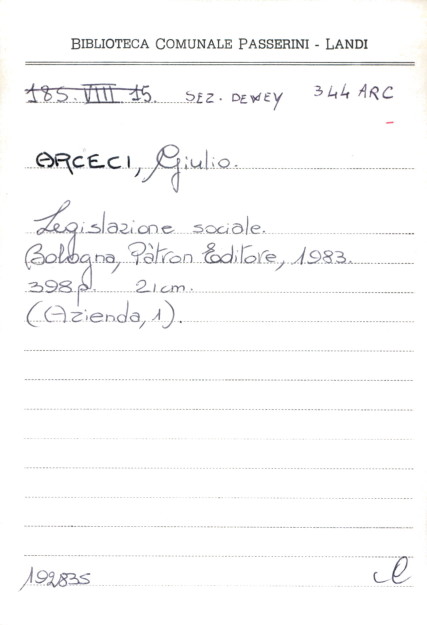 BIBLIOTECA COMUNALE PASSERINI - LANDI
185. VIII 15. SEZ. DEWEY 344 ARC
ARCECI, Giulio.
Legislazione sociale.
Bologna, Pàtron Editore, 1983.
398 p. 21 cm.
(Azienda, 1).
192835